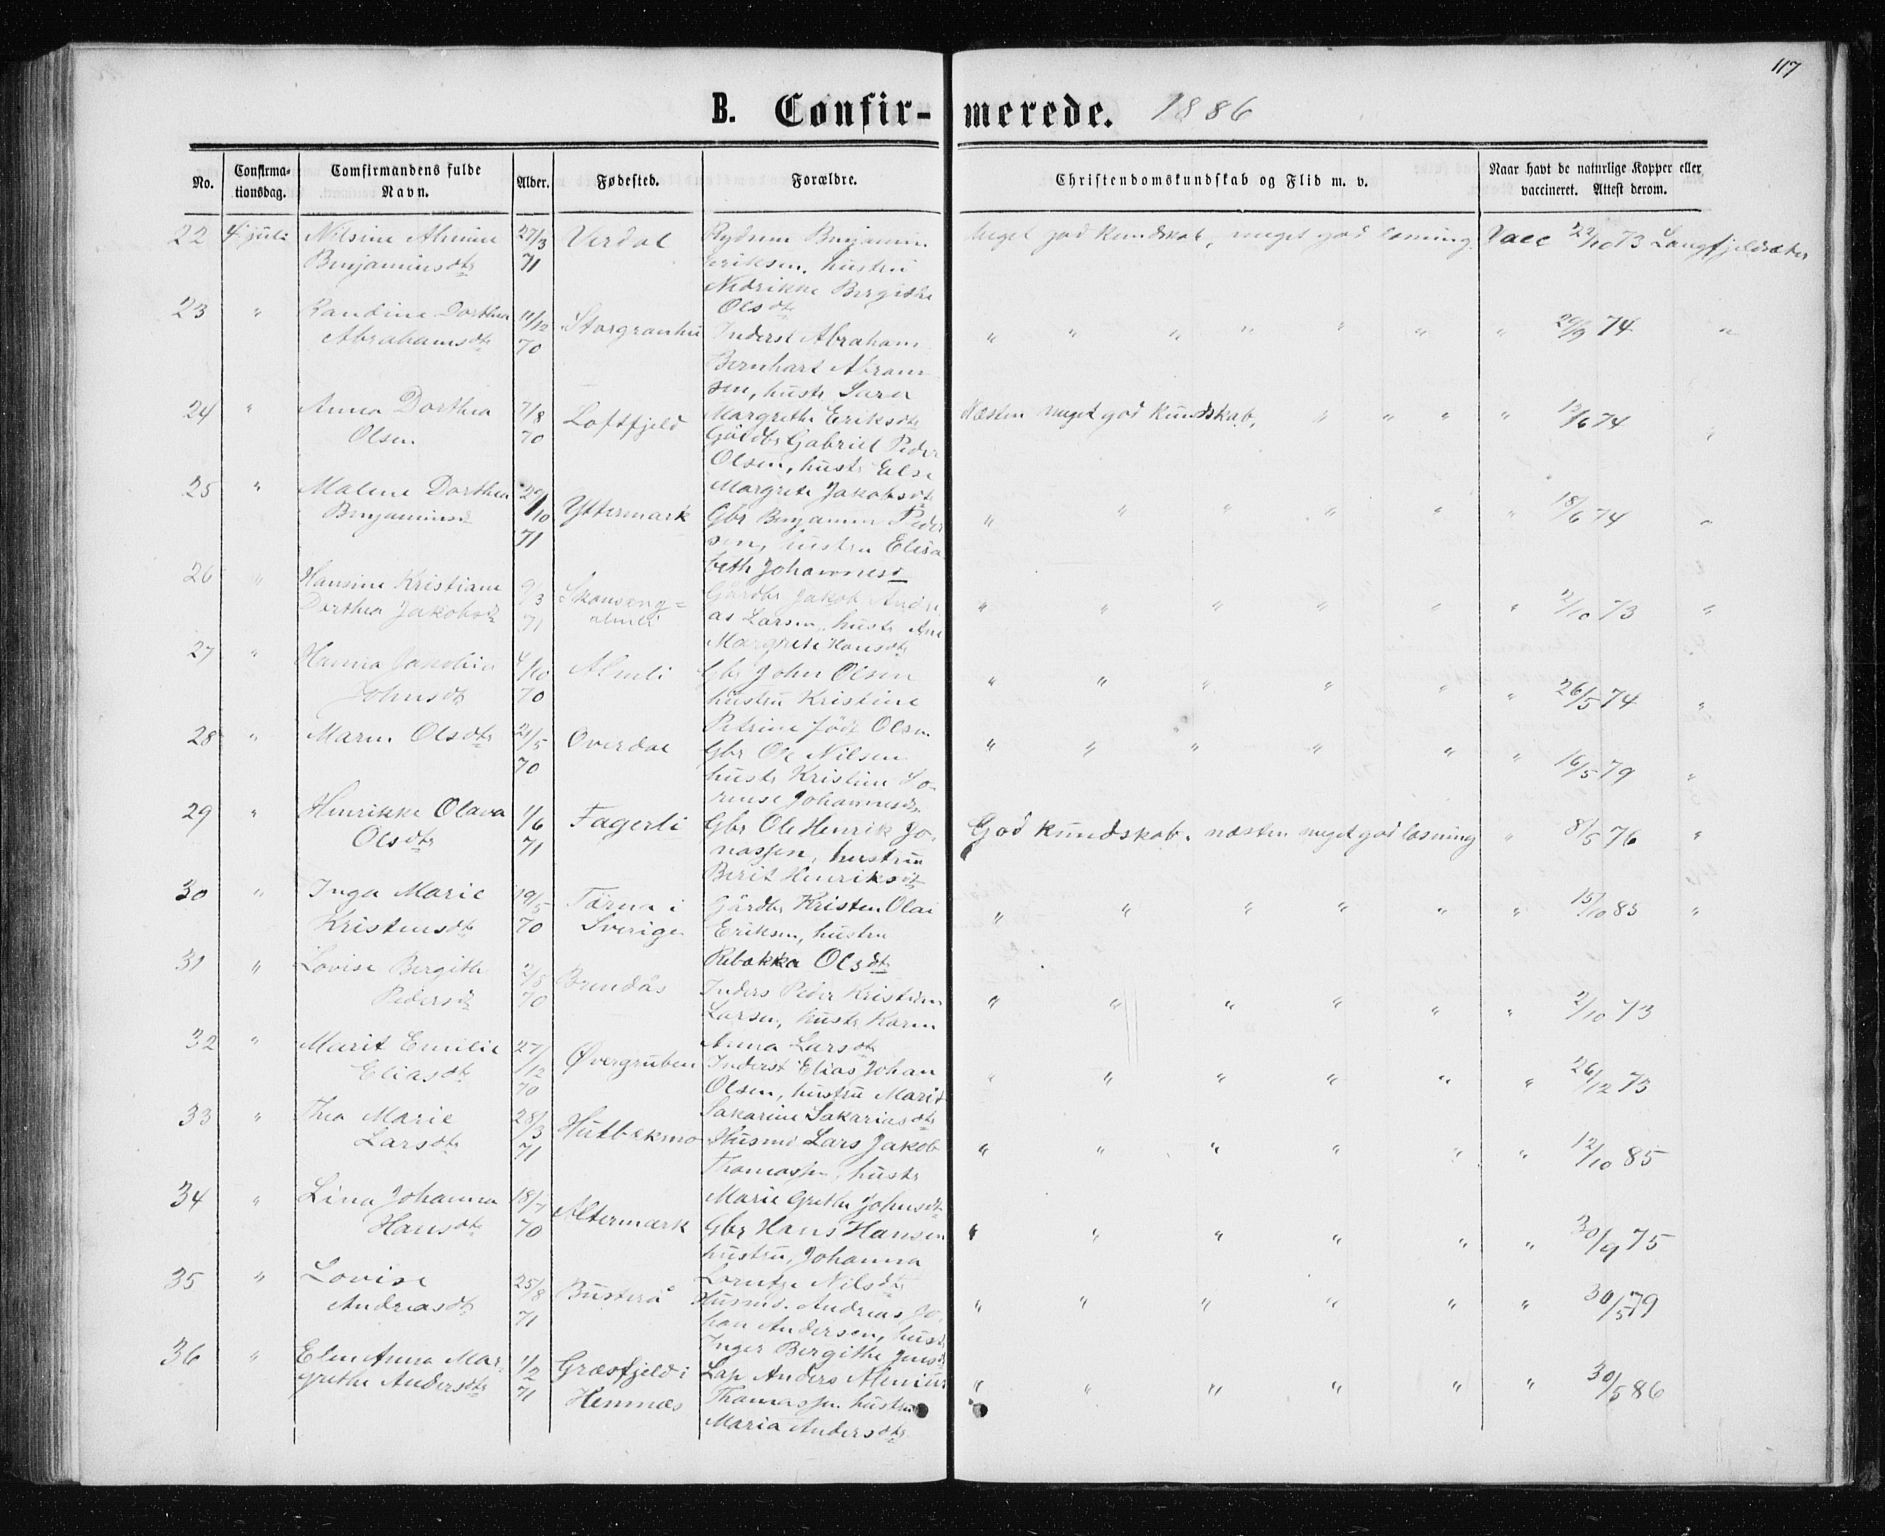 117
B. Confirmerede. 1886
No. Confirmationsdag. Comfirmandens fulde Navn. Alder. Fødested. Forældre. Christendomskundskab og Flid m. v. Naar havt de naturlige Kopper eller vaccineret. Attest derom.
22 4 juli Nilsine Benjaminsdtr 27/3 71 Virdal Benjamin Eriksen, hustru Nedrikke Bergithe Olsdtr Meget god kundskab, meget god læsning Vacc 73 Langfjeldsæter
23 " Randine Dorthea Abrahamsdtr 11/12 70 Storgranhei Inderst Abraham Bernhart Abramsen, hustr Sara Margrethe Eriksdtr " " " " " " " 20/9 74 "
24 " Anna Dorthea Olsen 7/8 70 Loftfjeld Gårdbr Gabriel Peder Olsen, hustr Else Margrete Jakobsdtr Næsten meget god kundskab, " " " " 19/6 74 "
25 " Malene Dorthea Benjaminsd 29/10 71 Yttermark Gbr Benjamin Pedersen, hustru Elisabeth Johannesd " " " " " " 18/6 74 "
26 " Hansine Kristiane Dorthea Jakobsd 9/3 71 Skonseng= almli Gårdbr Jakob Andreas Larsen, hustr Ane Margrete Hansdtr " " " " " " 2/10 73 "
27 " Hanna Jakobia Johnsdtr 4/10 70 Almli Gbr John Olsen hustru Kristine Petrine født Olsen " " " " " " 26/5 74 "
28 " Maren Olsdtr 21/5 70 Overdal Gbr Ole Nilsen hustr Kristine Lorense Johannesdtr " " " " " " 16/5 79 "
29 " Henrikke Olava Olsdtr 1/6 71 Fagerli Gbr Ole Henrik Jonassen, hustru Berit Henriksdtr God kundskab. næsten meget god læsning " 8/5 76 "
30 " Inga Marie Kristensdtr 19/5 70 Tärna i Sverige Gårdbr Kristen Olai Eriksen, hustru Rebekka Olsdtr " " " " " " 15/10 85 "
31 " Lovise Bergithe Pedersd 2/8 70 Brendås Inders Peder Kristian Larsen, hustr Karen Anna Larsdtr " " " " " " 2/10 73
32 " Marit Emilie Eliasdtr 27/12 70 Øvergruben Inderst Elias Johan Olsen, hustru Marit Sakarine Sakariasdtr " " " " " " 26/12 73
33 " Thea Marie Larsdtr 28/3 71 Hutbækmo Husmd Lars Jakob Thomassen, hustr Marie Grethe Johnsdtr " " " " " " 12/10 85
34 " Lina Johanna Hansdtr 18/7 70 Altermark Gbr Hans Hansen hustru, Johanna Lorntze Nilsdtr " " " " " " 30/9 75
35 " Lovise Andreasdtr 25/8 71 Busterå Husmd. Andreas Johan Andersen, hustr Inger Bergithe Jensdtr " " " " " " 30/5 79
36 " Elen Anna Margrethe Andersdtr 1/2 71 Græsfjeld i Hemnæs Lap Anders Thomassen hustru Maria Andersdtr " " " " " " 30/5 86